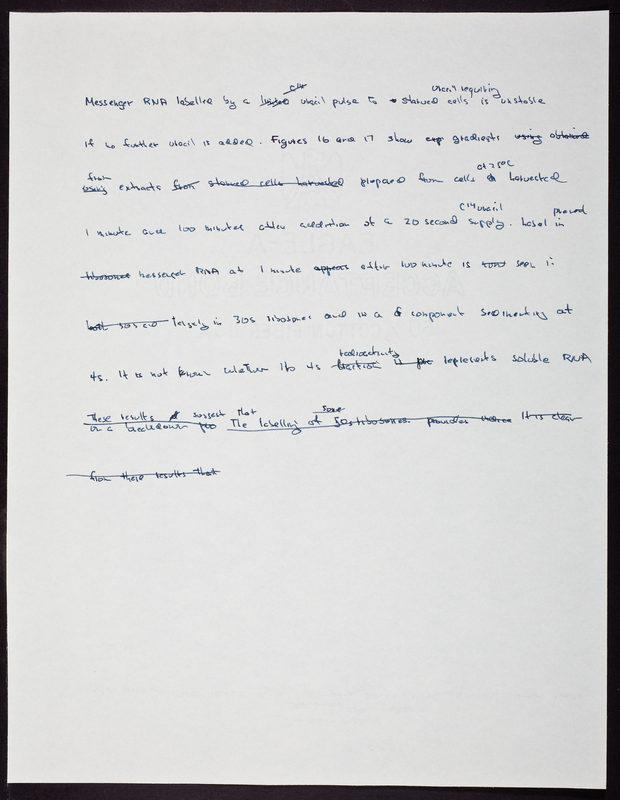 C14 uracil requiring
Messenger RNA labelled by a uracil pulse to starved cells is unstable
if no further uracil is added. Figures 16 and 17 show exp gradients using obtained
from at 25°C
using extracts from starved cells harvested prepared from cells harvested
C14 uracil present
1 minute and 100 minutes after addition of a 20 second supply. Label in
ribosomes messenger RNA at 1 minute appears after 100 minute is seen in
both 50S and largely in 30S ribosomes and in a component sedimenting at
radioactivity
4s. It is not known whether the 4s fraction represents soluble RNA
These results suggest that some
or a breakdown The labelling of 50s ribosomes provides It is clear
from these results that